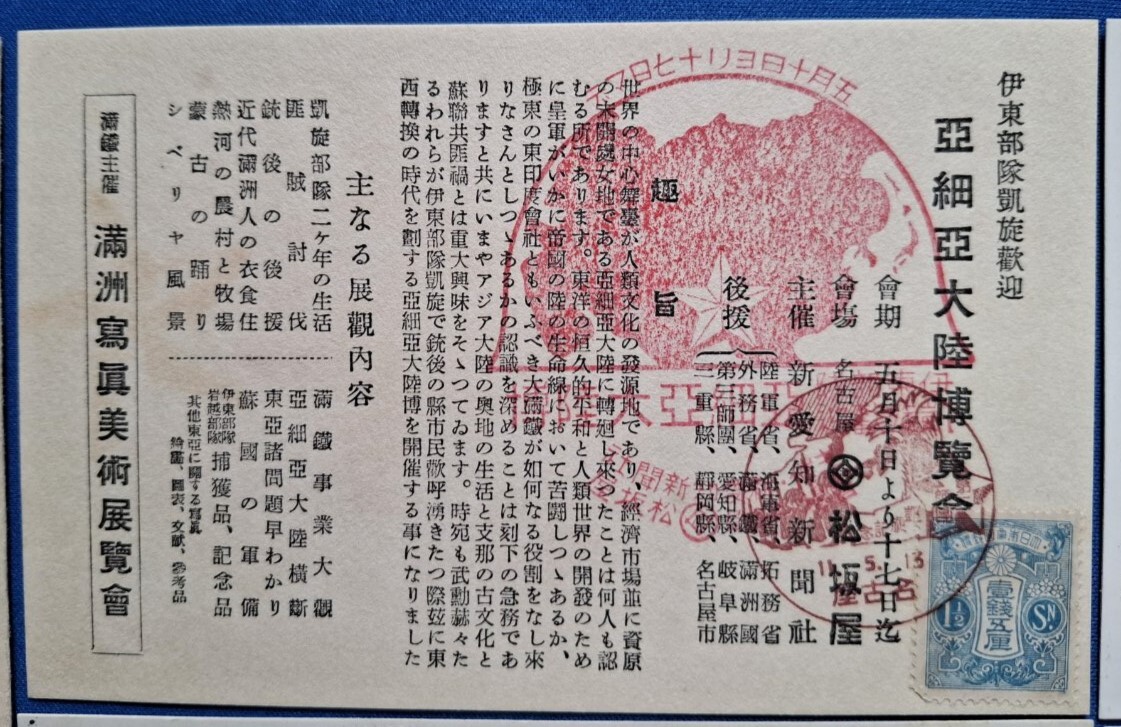 伊東部隊凱旋歡迎
亞細亞大陸博覽會
會期 五月十日より十七日迄
會場 名古屋 松坂屋
主催 新愛知新聞社
後援
陸軍省、海軍省、拓務省
外務省、滿鐵、滿洲國
第三師團、愛知縣、岐阜縣
三重縣、靜岡縣、名古屋市
趣旨
世界の中心舞臺が人類文化の發源地であり、經濟市場並に資原
の未開處女地である亞細亞大陸に轉廻し來つたことは何人も認
むる所であります。東洋の恒久的平和と人類世界の開發のため
に皇軍がいかに帝國の陸の生命線において苦鬪しつゝあるか、
極東の東印度會社ともいふべき大滿鐵が如何なる役割をなし來
りなさんとしつゝあるかの認識を深めることは刻下の急務であ
りますと共にいまやアジア大陸の奧地の生活と支那の古文化と
蘇聯共匪禍とは重大興味をそゝつてゐます。時宛も武勳赫々た
るわれらが伊東部隊凱旋で銃後の縣市民歡呼湧きたつ際茲に東
西轉換の時代を劃する亞細亞大陸博を開催する事になりました
主なる展觀内容
凱旋部隊二ケ年の生活
匪賊討伐
銃後の後援
近代滿洲人の衣食住
熱河の農村と牧場
蒙古の踊り
シベリヤ風景
滿鐵事業大觀
亞細亞大陸橫斷
東亞諸問題早わかり
蘇國の軍備
伊東部隊
岩越部隊
捕獲品、記念品
其他東亞に關する寫眞
繪畫、圖表、文献、參考品
滿鐵主催 滿洲寫眞美術展覽會
五月十四ヨリ十七日マデ
亞細亞大陸
新聞
松坂屋
11.5.13
名古屋
大日本帝國郵便
壹錢五厘
1½ SN.